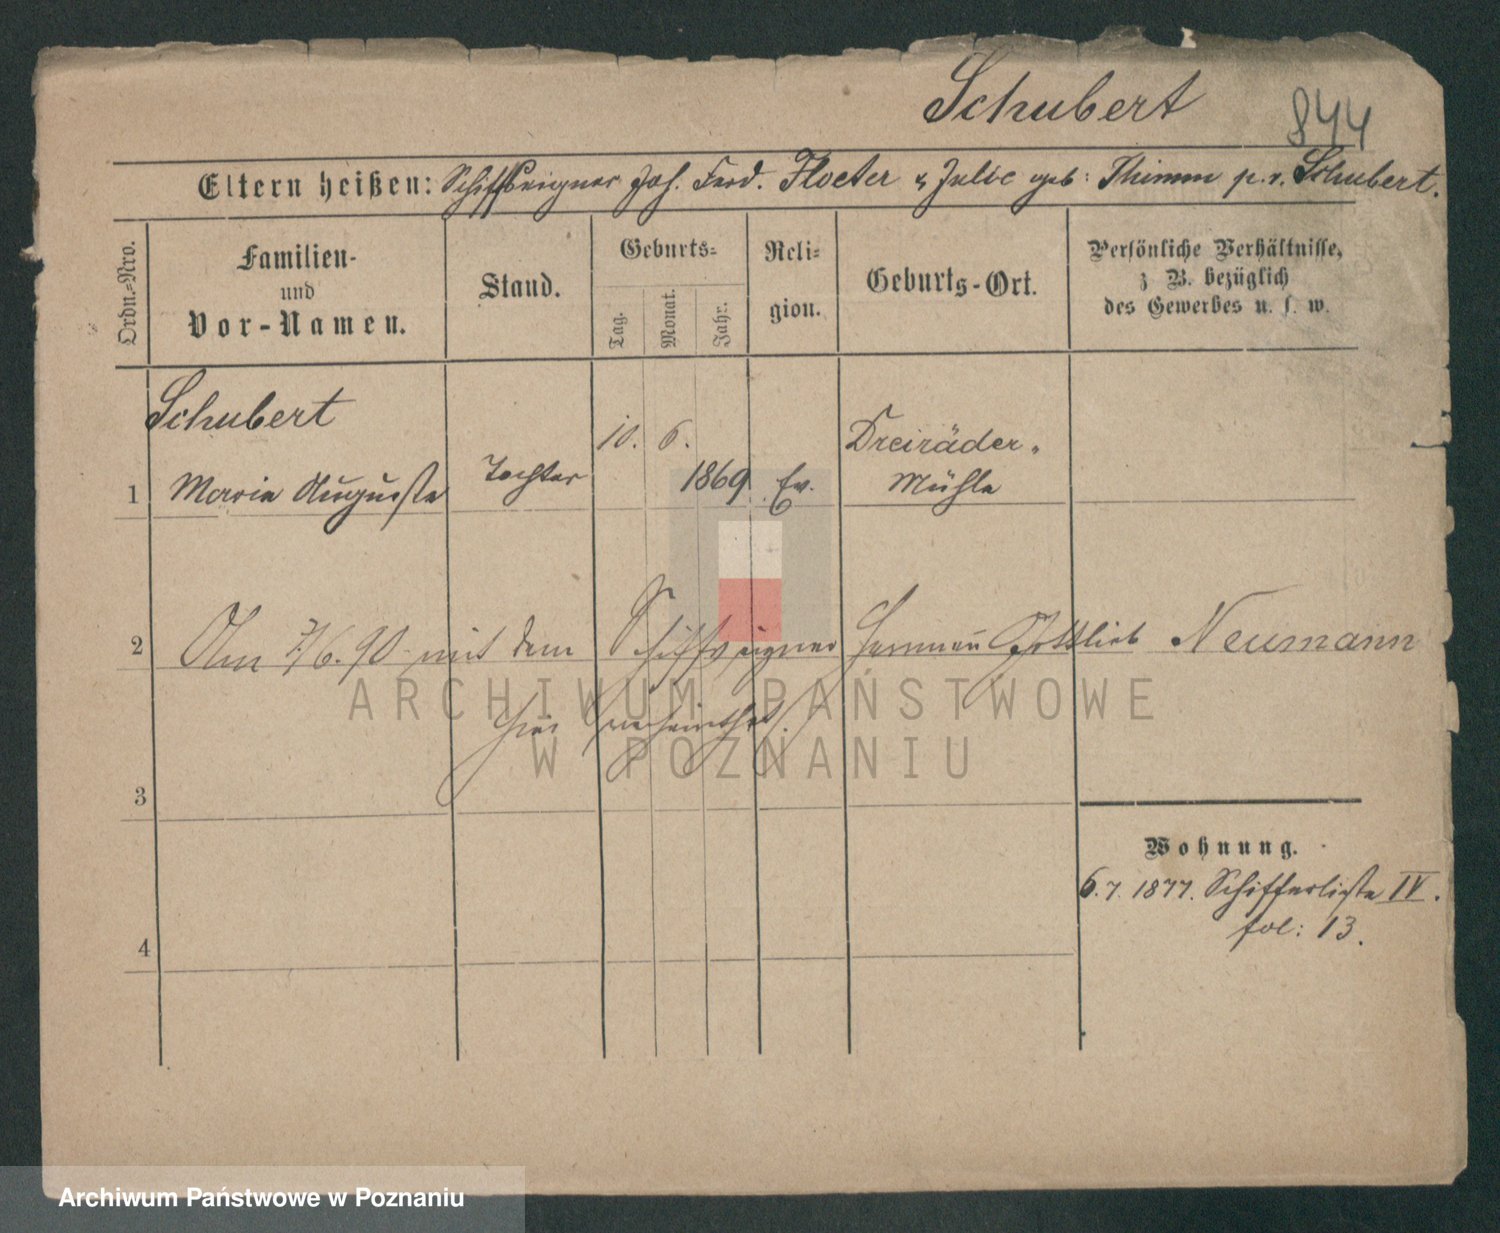 Schubert
844
Eltern heißen: Schiffseigner Joh. Ferd. Floeter & Julie geb: Thimm p. v. Schubert.
Ordn.=Nro.
Familien-
und
Vor-Namen.
Stand.
Geburts=
Tag.
Monat.
Jahr.
Reli=
gion.
Geburts-Ort.
Persönliche Verhältnisse,
z B. bezüglich
des Gewerbes u. s. w.
Schubert
1 Marie Auguste Tochter 10. 6. 1869 Ev. Dreiräder-
Mühle
2 Am 7/6. 90 mit dem Schiffseigner Herman Gottlieb Neumann
hier verheirathet.
3
4
Wohnung.
6. 7. 1877. Schifferliste IV.
fol: 13.
ARCHIWUM PAŃSTWOWE
W POZNANIU
Archiwum Państwowe w Poznaniu